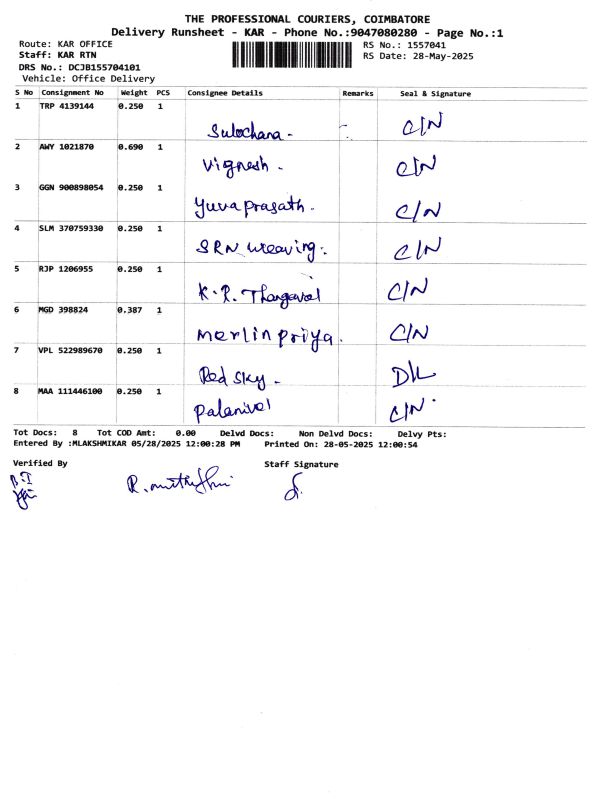 THE PROFESSIONAL COURIERS, COIMBATORE
Delivery Runsheet - KAR - Phone No.:9047080280 - Page No.:1
Route: KAR OFFICE RS No.: 1557041
Staff: KAR RTN RS Date: 28-May-2025
DRS No.: DCJB155704101
Vehicle: Office Delivery
S No Consignment No Weight PCS Consignee Details Remarks Seal & Signature
1 TRP 4139144 0.250 1
Sulochana - C/N
2 AWY 1021870 0.690 1
Vignesh - C/N
3 GGN 900898054 0.250 1
Yuvaprasath. C/N
4 SLM 370759330 0.250 1
SRN Weaving. C/N
5 RJP 1206955 0.250 1
K.P. Thangavel C/N
6 MGD 398824 0.387 1
merlinpriya. C/N
7 VPL 522989670 0.250 1
Red sky - D/L
8 MAA 111446100 0.250 1
Palanivel C/N
Tot Docs: 8 Tot COD Amt: 0.00 Delvd Docs: Non Delvd Docs: Delvy Pts:
Entered By :MLAKSHMIKAR 05/28/2025 12:00:28 PM Printed On: 28-05-2025 12:00:54
Verified By Staff Signature